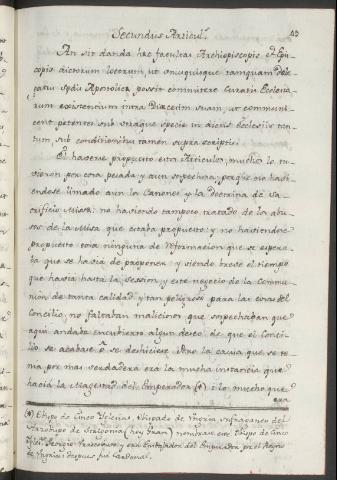 43
Secundus Articul.s
An sit danda hæc facultas Archiepiscopis, et Epis-
copis dictorum locorum, ut unusquisque tamquam Dele-
gatus Sedis Apostolica, possit committere Curatis Ecclesia-
rum existentium intra Diæcesim suam, ut communi-
cent petentes sub utraque specie in dictis Ecclesiis tan-
tum, sub conditionibus tamen supra scriptis.
El haverse propuesto estos Articulos, muchos lo tu-
vieron por cosa pesada, y aun sospechosa; porque no havi-
endose limado aun los Canones, y la doctrina de Sa-
crificio Missæ: no haviendo tampoco tratado de los abu-
sos de la Misa, que estaba propuesto: y no haviendose
propuesto cosa ninguna de Reformacion que se espera-
ba que se havia de proponer: y siendo breve el tiempo
que havia hasta la Session, y este negocio de la Comu-
nion de tanta calidad, y tan peligroso para las cosas del
Concilio, no faltaban maliciosos que sospechaban que
aqui andaba encubierto algun deseo de que el Conci-
lio se acabase, o se deshiciese. Pero la causa que se te-
nia por mas verdadera era la mucha instancia que
hacia la Magestad del Emperador (*) i lo mucho que
era
(*) Obispo de Cinco Iglesias, Obispado de Ungria sufraganeo del
Arzobispo de Strigonia (hoy Gran) nombrase este Obispo de Cinco
Iglesias Jorgio Drascovics y era Embaxador del Emperador por el Reyno
de Ungria: despues fue Cardenal.